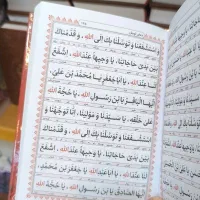 وَاسْتَشْفَعْنَا وَتَوَسَّلْنَا بِكَ اِلَى اللهِ، وَقَدَّمْنَاكَ
بَيْنَ يَدَيْ حَاجَاتِنَا، يَا وَجِيهًا عِنْدَ اللهِ، اِشْفَعْ
لَنَا عِنْدَ اللهِ. يَا اَبَا جَعْفَرٍ يَا مُحَمَّدَ بْنَ عَلِيٍّ،
اَيُّهَا الْبَاقِرُ يَا بْنَ رَسُولِ اللهِ، يَا حُجَّةَ اللهِ
عَلَى خَلْقِهِ، يَا سَيِّدَنَا وَمَوْلَانَا، اِنَّا تَوَجَّهْنَا وَ
اسْتَشْفَعْنَا وَتَوَسَّلْنَا بِكَ اِلَى اللهِ، وَقَدَّمْنَاكَ
بَيْنَ يَدَيْ حَاجَاتِنَا، يَا وَجِيهًا عِنْدَ اللهِ، اِشْفَعْ
لَنَا عِنْدَ اللهِ. يَا اَبَا عَبْدِ اللهِ يَا جَعْفَرَ بْنَ مُحَمَّدٍ،
اَيُّهَا الصَّادِقُ يَا بْنَ رَسُولِ اللهِ، يَا حُجَّةَ اللهِ